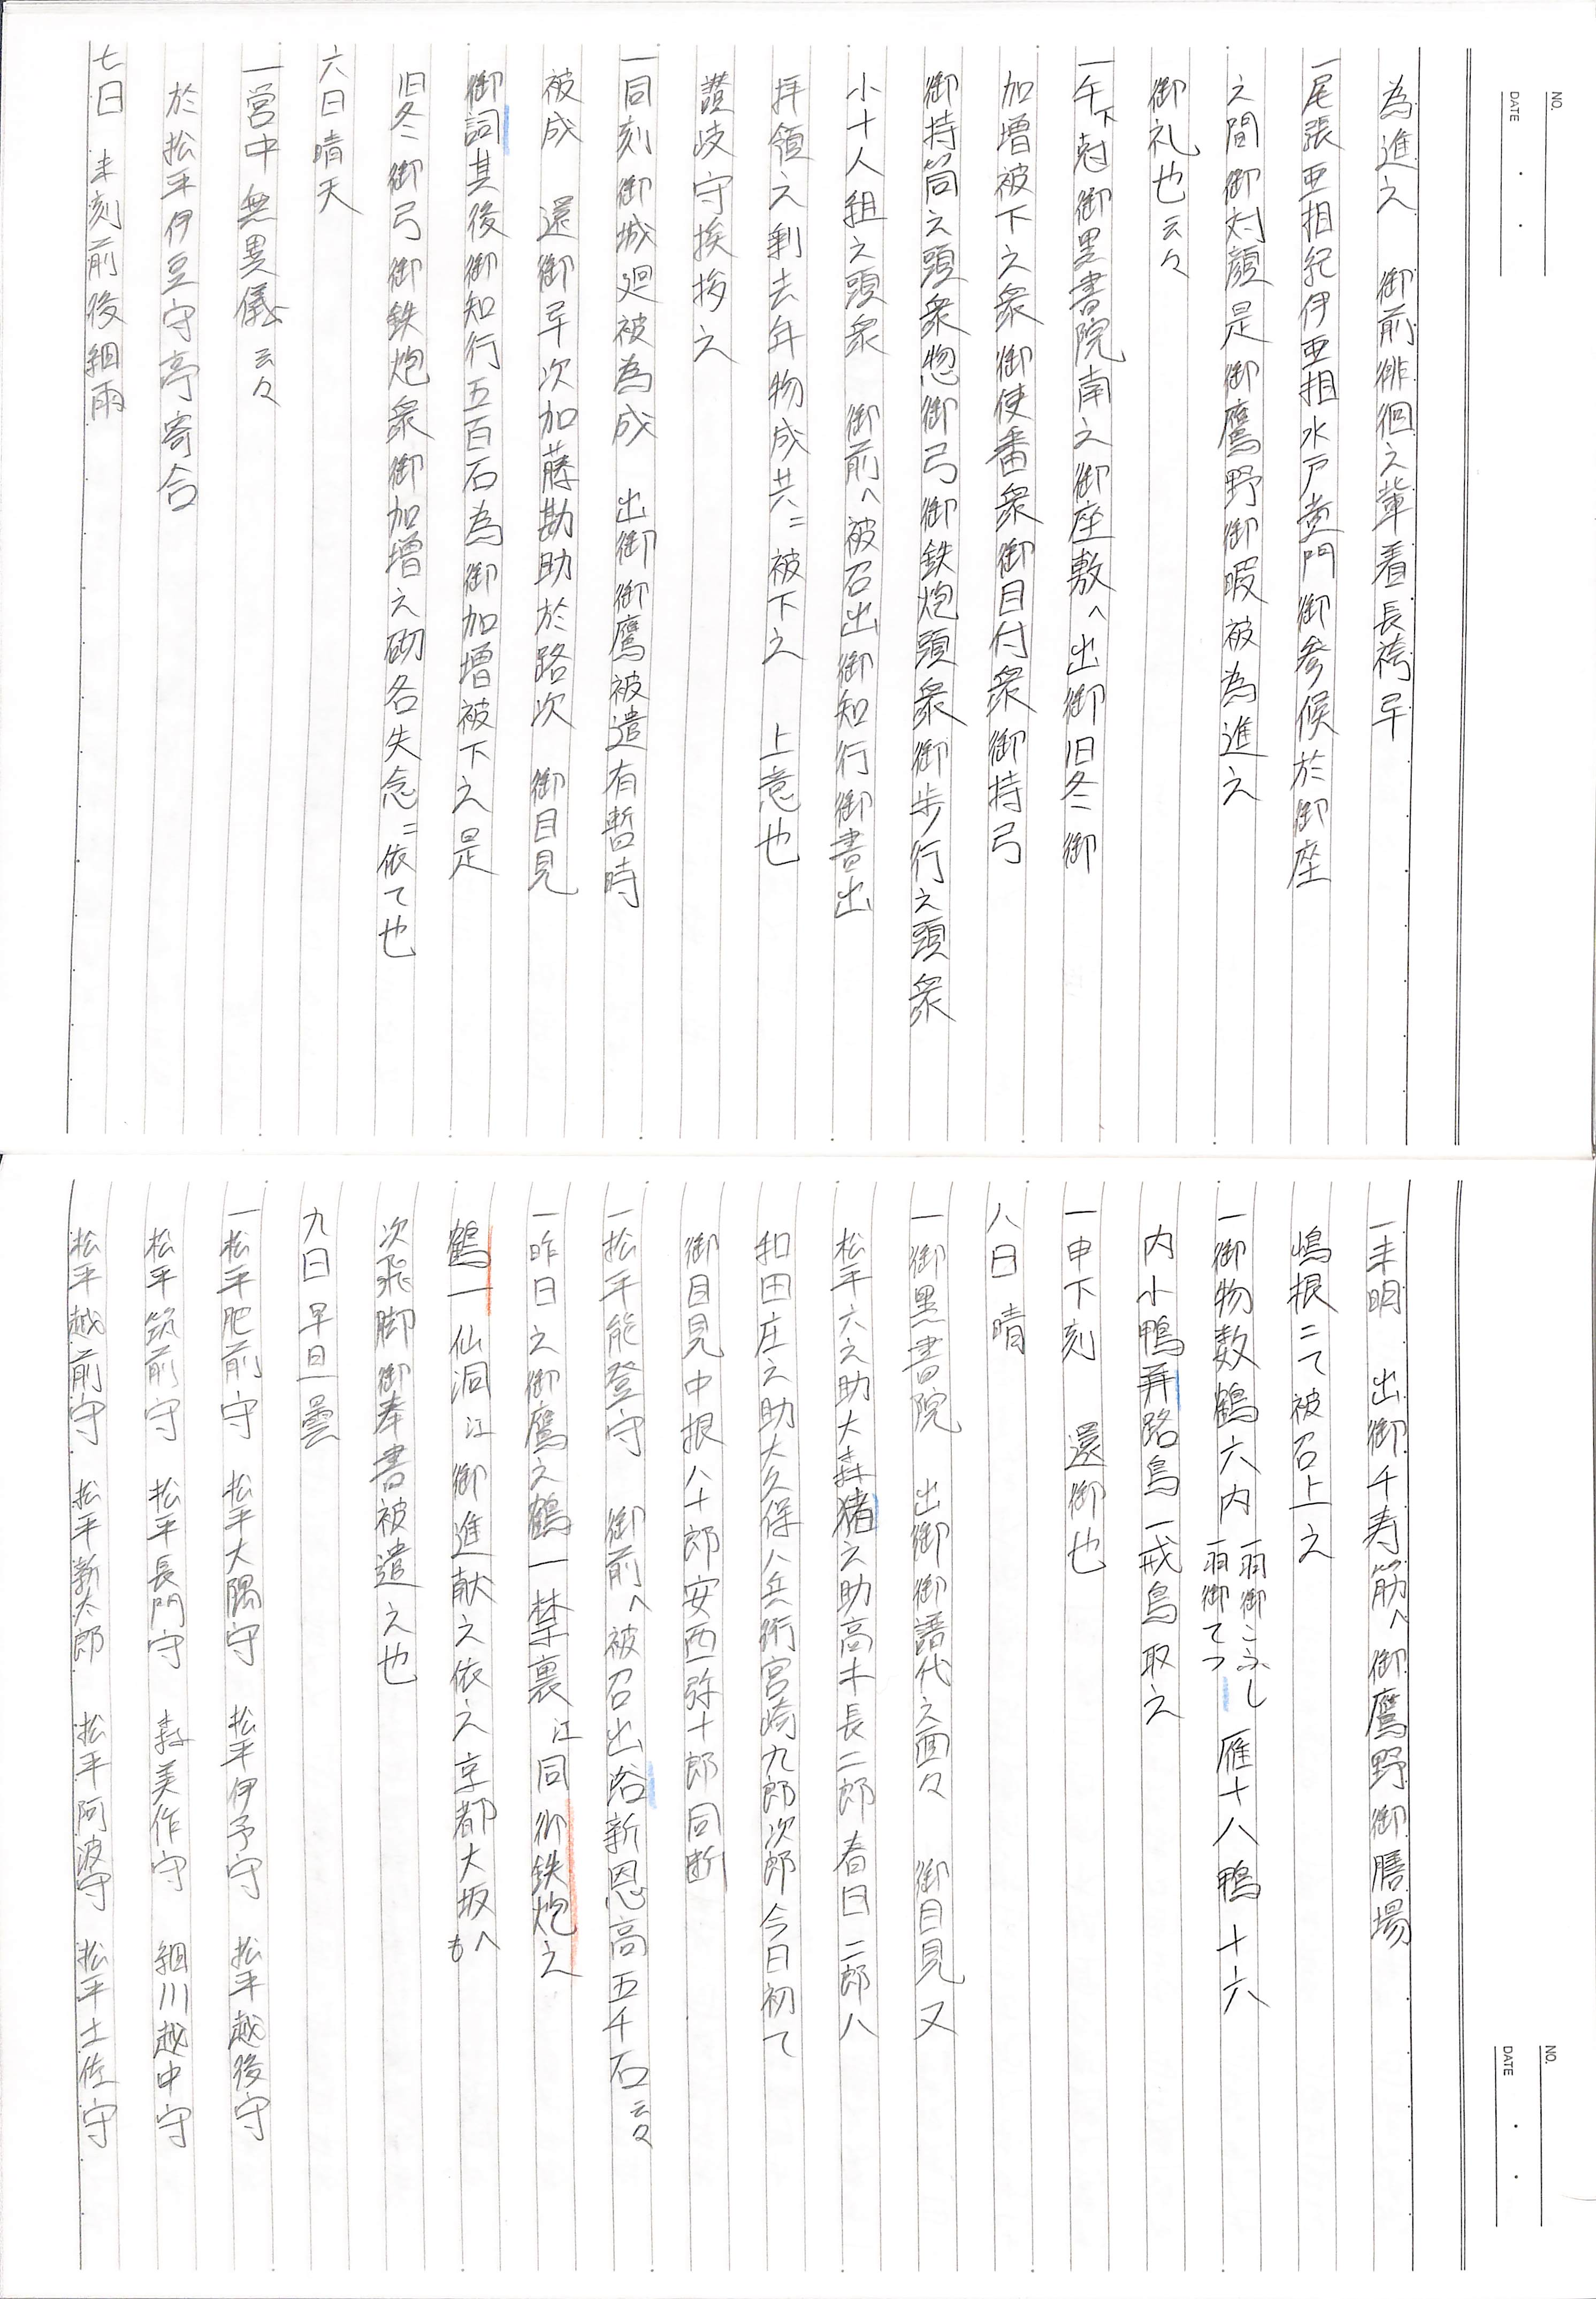 NO.
DATE
為進之　御前徘徊之輩着長袴畢
一尾張亜相紀伊亜相水戸黄門御参候於御座
之間御対顔是御鷹野御暇被為進之
御礼也云々
一午下剋御黒書院南之御座敷へ出御旧冬御
加増被下之衆御使番衆御目付衆御持弓
御持筒之頭衆惣御弓御鉄炮頭衆御歩行之頭衆
小十人組之頭衆　御前へ被召出御知行御書出
拝領之剰去年物成共ニ被下之　上意也
讃岐守挨拶之
一同刻御城廻被為成　出御御鷹被遣有暫時
被成　還御畢次加藤勘助於路次　御目見
御詞其後御知行五百石為御加増被下之是
旧冬御弓御鉄炮衆御加増之砌各失念ニ依て也
六日晴天
一営中無異儀云々
於松平伊豆守亭寄合
七日　未刻前後細雨
NO.
DATE
一未明　出御千寿筋へ御鷹野御膳場
嶋根ニて被召上之
一御物数鶴六内　一羽御こふし　一羽御てつ　雁十八鴨十六
内小鴨弄路鳥一戒鳥取之
一申下刻　還御也
八日　晴
一御黒書院　出御御譜代之面々　御目見又
松平六之助大森猪之助高木長二郎春日二郎八
和田庄之助大久保八兵衛宮崎九郎次郎今日初て
御目見中根八十郎安西弥十郎同断
一松平能登守　御前へ被召出浴新恩高五千石云々
一昨日之御鷹之鶴一禁裏江同御鉄炮之
鶴一　仙洞江御進献之依之京都大坂へも
次飛脚御奉書被遣之也
九日早旦曇
一松平肥前守　松平大隅守　松平伊予守　松平越後守
松平筑前守　松平長門守　森美作守　細川越中守
松平越前守　松平新太郎　松平阿波守　松平土佐守